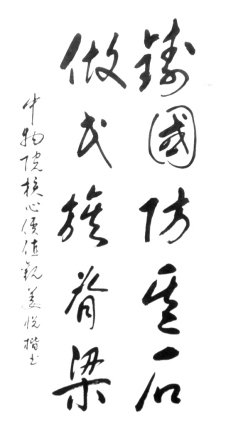 铸國防基石
做民族脊梁
中物院核心價值観姜悦楷书